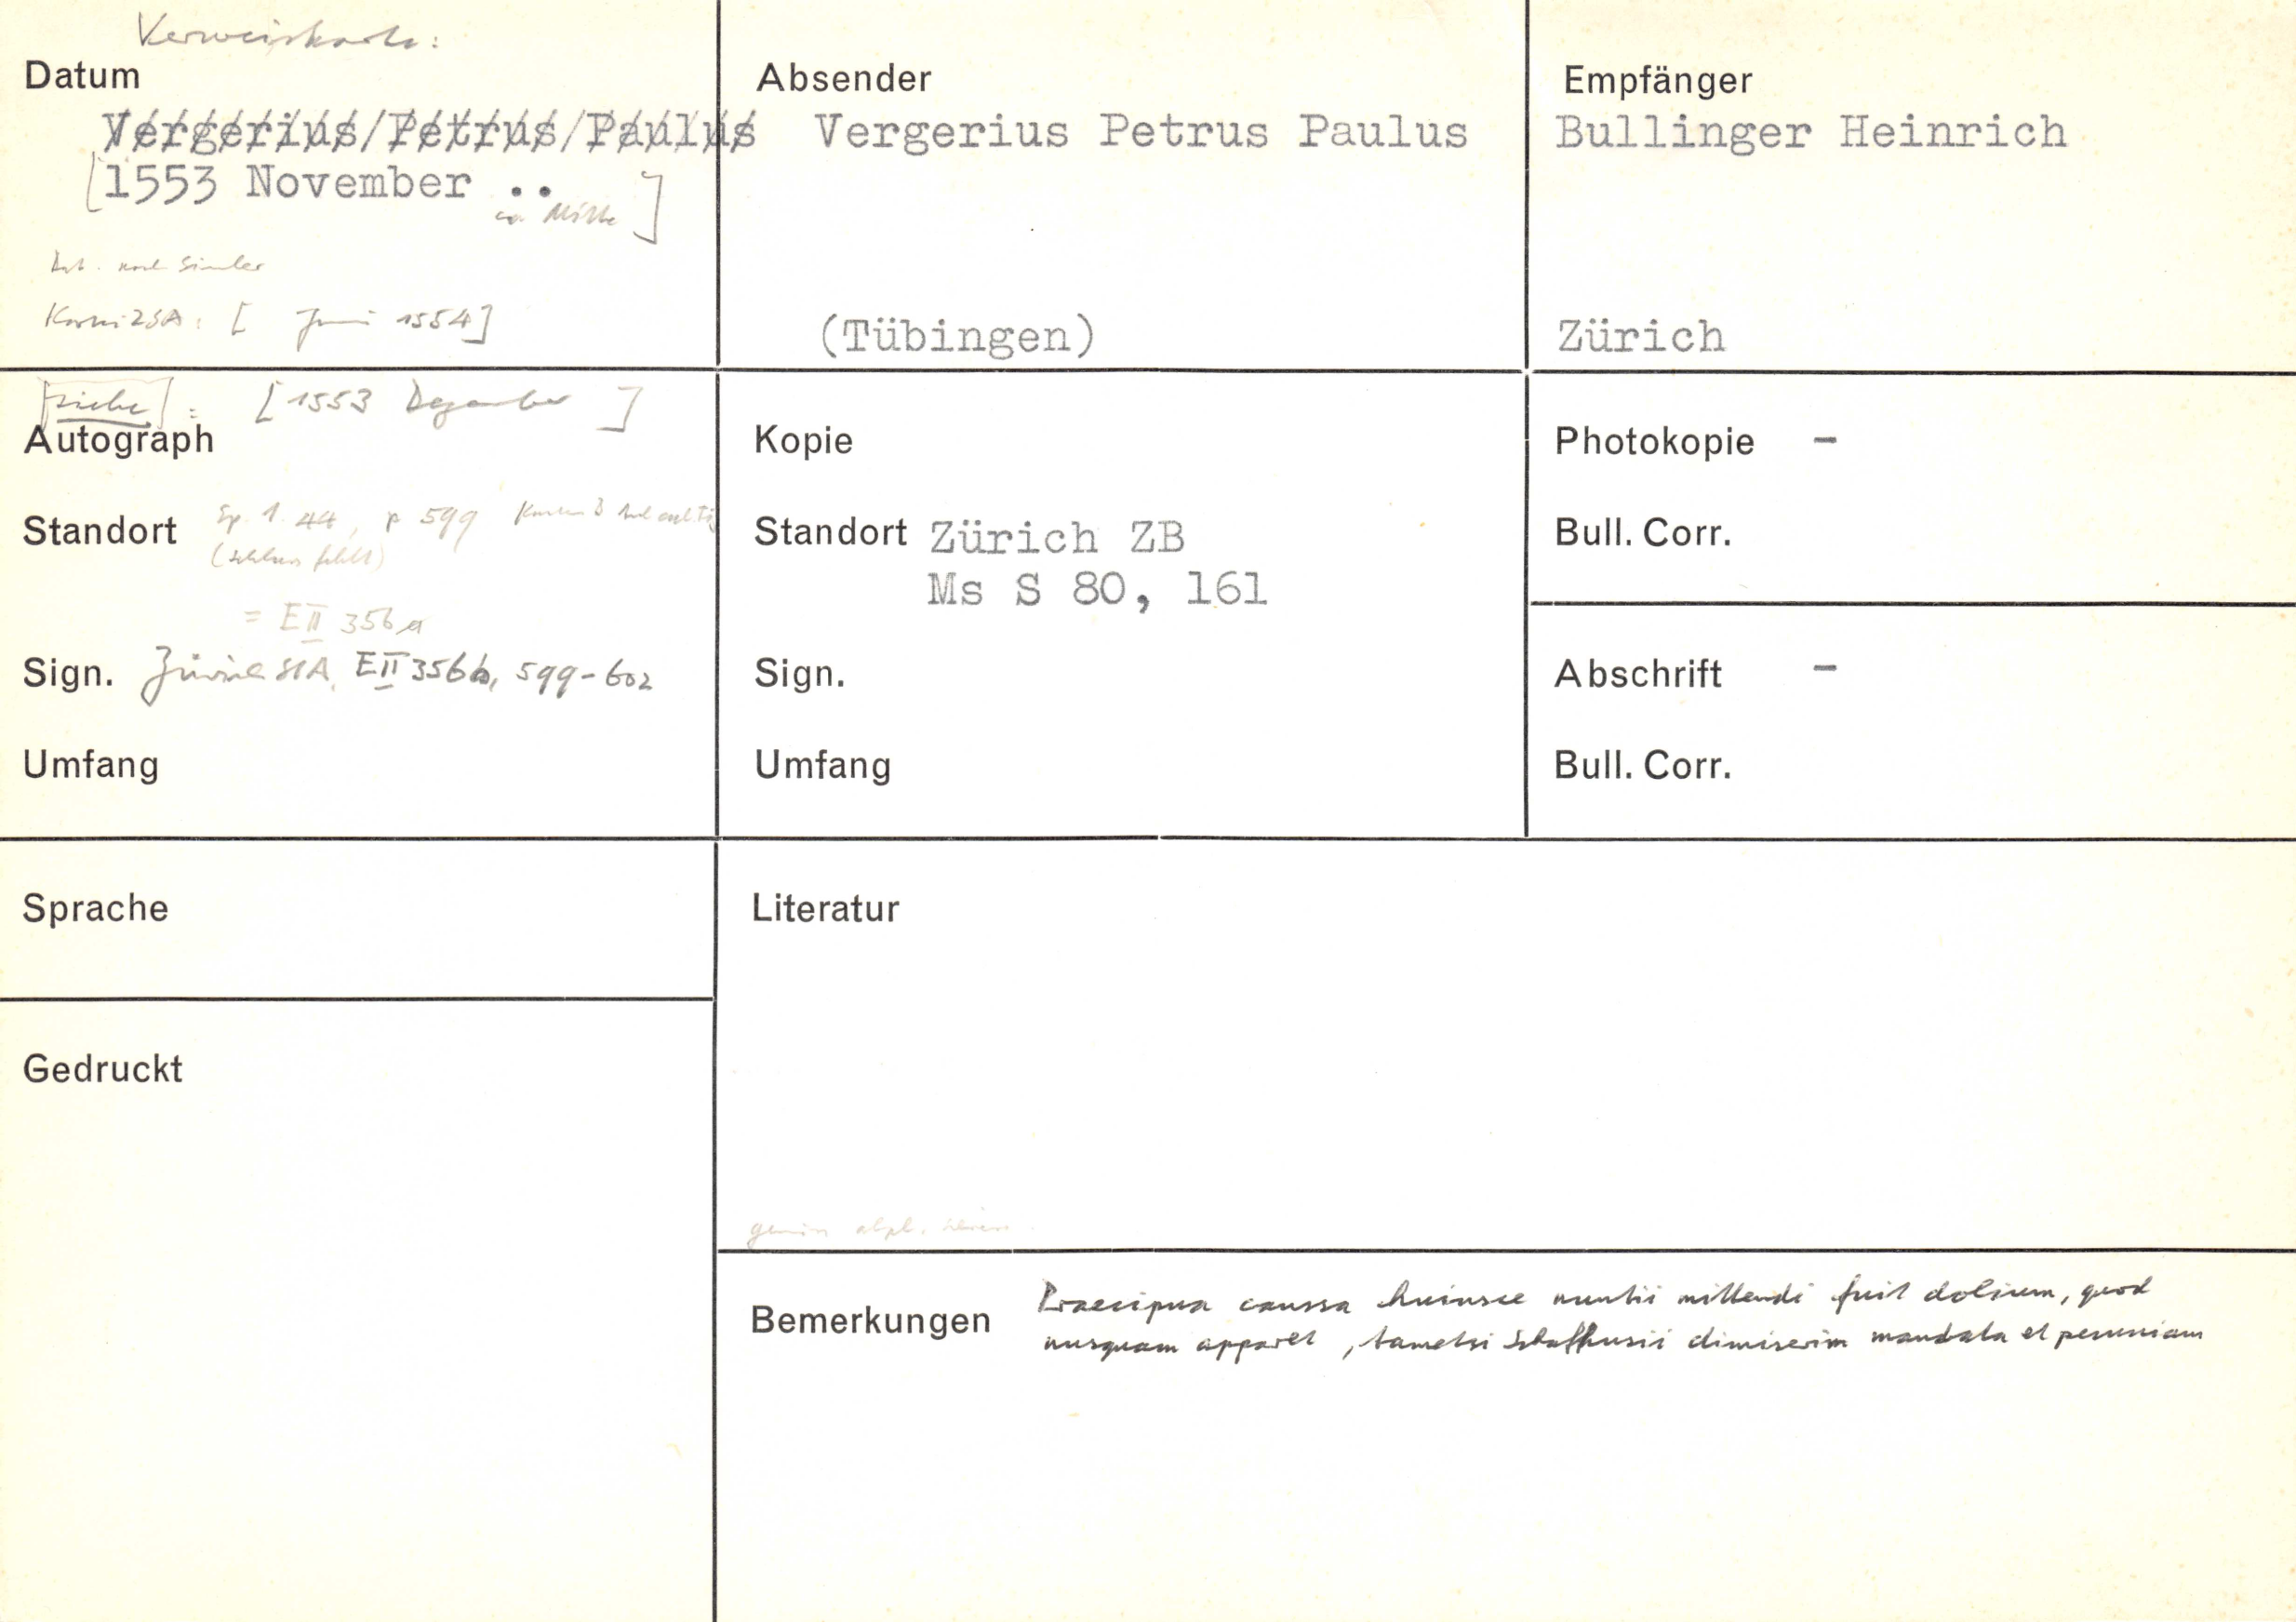 Verweiskarte:
Datum
Vergerius/Petrus/Paulus
[1553 November ..
ca. Mitte ]
Dat. nach Simler
[ Juni 1554]
Absender
Vergerius Petrus Paulus
(Tübingen)
Empfänger
Bullinger Heinrich
Zürich
[siehe] : [1553 Dezember ]
Autograph
Standort Ep. 1. 44, p 599
(Schluss fehlt)
= EII 356a
Sign. Zürich StA, EII 356b, 599-602
Umfang
Kopie
Standort Zürich ZB
Ms S 80, 161
Sign.
Umfang
Photokopie -
Bull. Corr.
Abschrift -
Bull. Corr.
Sprache
Gedruckt
Literatur
Bemerkungen
Praecipua caussa huiusce nuntii mittendi fuit dolium, quod
nusquam apparet, tametsi Schafhusii dimiserim mandata et pecuniam